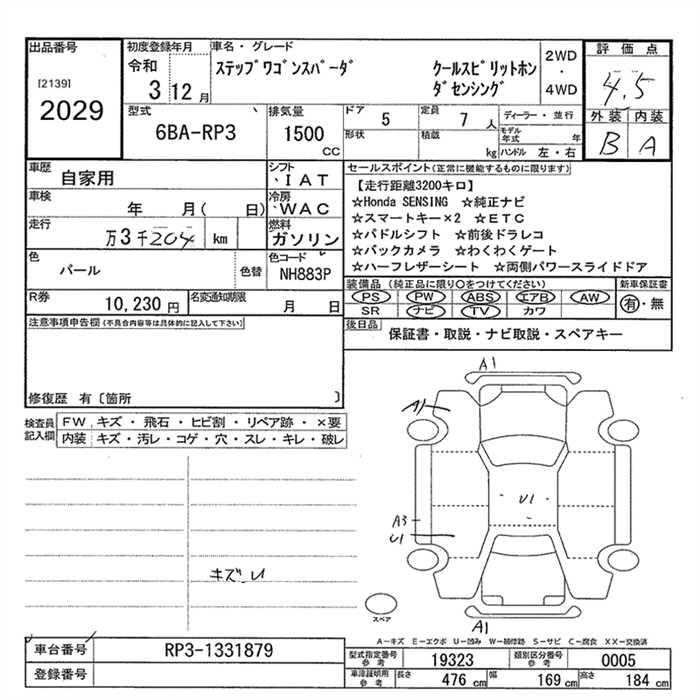 出品番号
[2139]
2029
初度登録年月
令和
3 12 月
車名・グレード
ステップワゴンスパーダ クールスピリットホン
ダセンシング
2WD
・
4WD
評価点
4.5
外装 内装
B A
型式
6BA-RP3
排気量
1500
CC
ドア 5
定員 7 人
形状
積載 kg
ディーラー・並行
モデル年式 年
ハンドル 左・右
車歴 自家用
シフト
IAT
車検 年 月( 日)
冷房
WAC
走行 万3千204 km
燃料
ガソリン
色 パール
色替
色コード
NH883P
R券 10,230 円
名変通知期限 月 日
セールスポイント(正常に機能するものに限ります)
【走行距離3200キロ】
☆Honda SENSING ☆純正ナビ
☆スマートキー×2 ☆ETC
☆パドルシフト ☆前後ドラレコ
☆バックカメラ ☆わくわくゲート
☆ハーフレザーシート ☆両側パワースライドドア
装備品(純正品に限り○をつけてください)
PS PW ABS エアB AW
SR ナビ TV カワ
新車保証書
有・無
後日品 保証書・取説・ナビ取説・スペアキー
注意事項申告欄(不具合内容等は具体的に記入して下さい)
修復歴 有〔箇所 〕
検査員
記入欄
FW キズ・飛石・ヒビ割・リペア跡・×要
内装 キズ・汚レ・コゲ・穴・スレ・キレ・破レ
キズ
A1
A1
U1
A3
U1
A1
スペア
A-キズ E-エクボ U-凹み W-補修跡 S-サビ C-腐食 XX-交換済
車台番号 RP3-1331879
登録番号
型式指定番号
参考
19323
類別区分番号
参考
0005
車庫証明用
参考
長さ 476 cm 幅 169 cm 高さ 184 cm